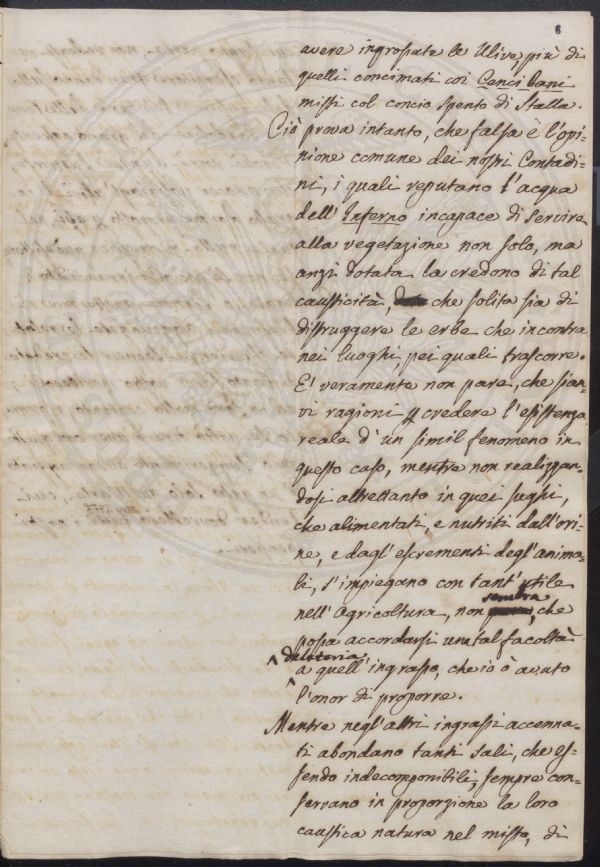 6
avere ingrossate le Ulive, più di
quelli concimati coi Cenci lani
misti col concio spento di Stalla.
Ciò prova intanto, che falsa è l'opi=
nione comune dei nostri Contadi=
ni, i quali reputano l'acqua
dell'Inferno incapace di servire
alla vegetazione non solo, ma
anzi dotata la credono di tal
causticità, che solita sia di
distruggere le erbe che incontra
nei luoghi, pei quali trascorre.
E' veramente non pare, che sian=
vi ragioni p credere l'esistenza
reale d'un simil fenomeno in
questo caso, mentre non realizzan=
dosi altrettanto in quei sughi,
che alimentati, e nutriti dall'ori=
ne, e dagl'escrementi degl'anima=
li, s'impiegano con tant'utile
nell'Agricoltura, non sembra, che
possa accordarsi una tal facoltà
deleteria
a quell'ingrasso, che io ò avuto
l'onor di proporre.
Mentre negl'altri ingrassi accenna=
ti abondano tanti sali, che es=
sendo indecomponibili, sempre con=
servano in proporzione la loro
caustica natura nel misto, di